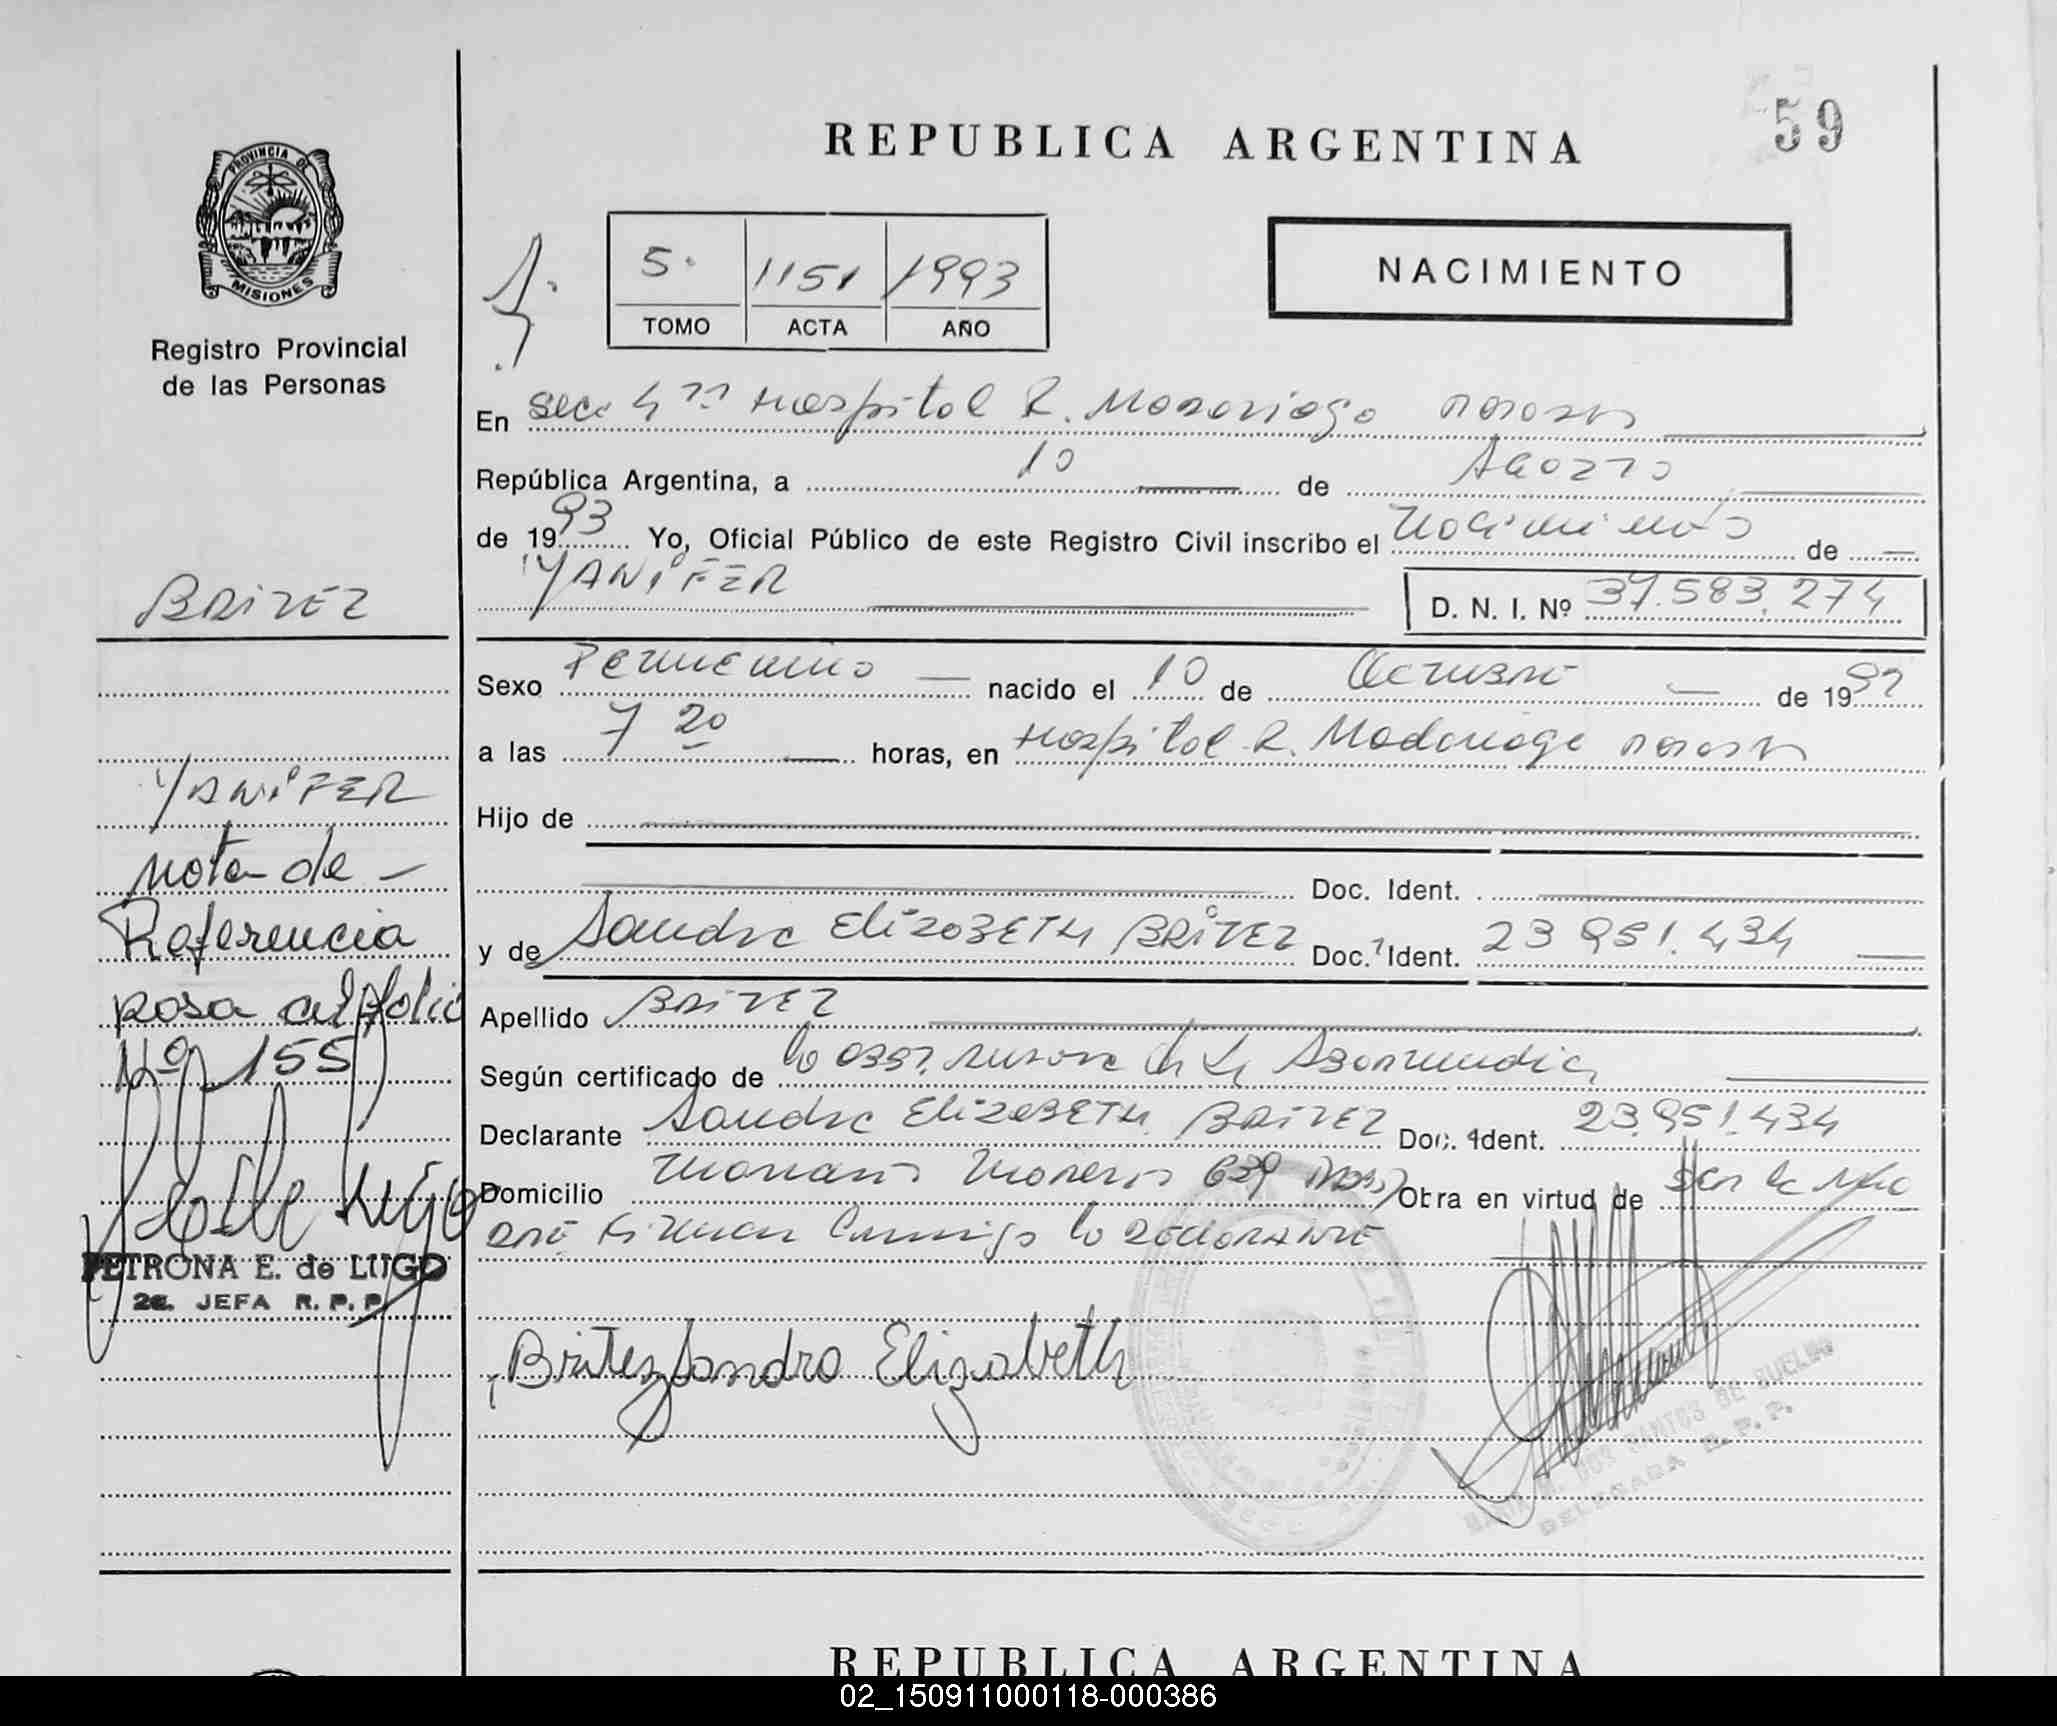 59
REPUBLICA ARGENTINA
PROVINCIA DE
MISIONES
Registro Provincial
de las Personas
5. 1151 1993
TOMO ACTA AÑO
NACIMIENTO
En Secc 4ta Hospital R. Madariaga
República Argentina, a 10 de Agosto
de 1993 Yo, Oficial Público de este Registro Civil inscribo el Nacimiento de
YANIFER
D. N. I. Nº 37.583.274
BRITEZ
Sexo Femenino nacido el 10 de Octubre de 1992
a las 7 20 horas, en Hospital R. Madariaga
Hijo de
Doc. Ident.
y de Sandra Elizabeth BRITEZ Doc. Ident. 23 951.434
Apellido BRITEZ
Según certificado de la
Declarante Sandra Elizabeth BRITEZ Doc. Ident. 23.951.434
Domicilio Mariano Moreno 639 Obra en virtud de ser la
firman conmigo la declarante
Britez Sandra Elizabeth
DOS SANTOS DE
DELEGADA R. P. P.
YANIFER
Nota de
Referencia
pasa al folio
Nº 155
PETRONA E. de LUGO
2a. JEFA R. P. P.
REPUBLICA ARGENTINA
02_150911000118-000386